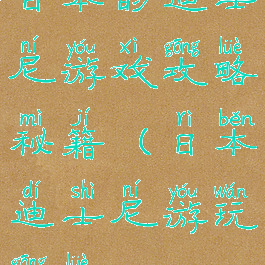 日本的迪士
ní yóu xì gōng lüè
尼游戏攻略
mì jí ( rì běn
秘籍(日本
dí shì ní yóu wán
迪士尼游玩
gōng lüè